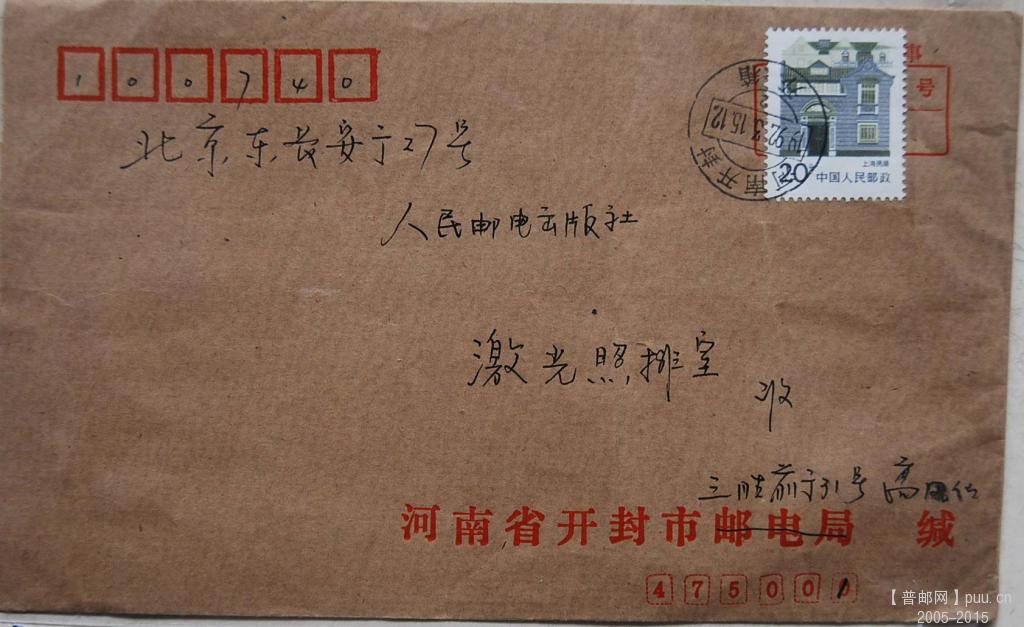 100740
北京东长安亍27号
人民邮电出版社
激光照排室
收
事
号
上海民居
20 中国人民邮政
河南开封
1992.3.15.12
箱
三胜前亍31号 高
河南省开封市邮电局 缄
475001
【普邮网】puu.cn
2005-2015